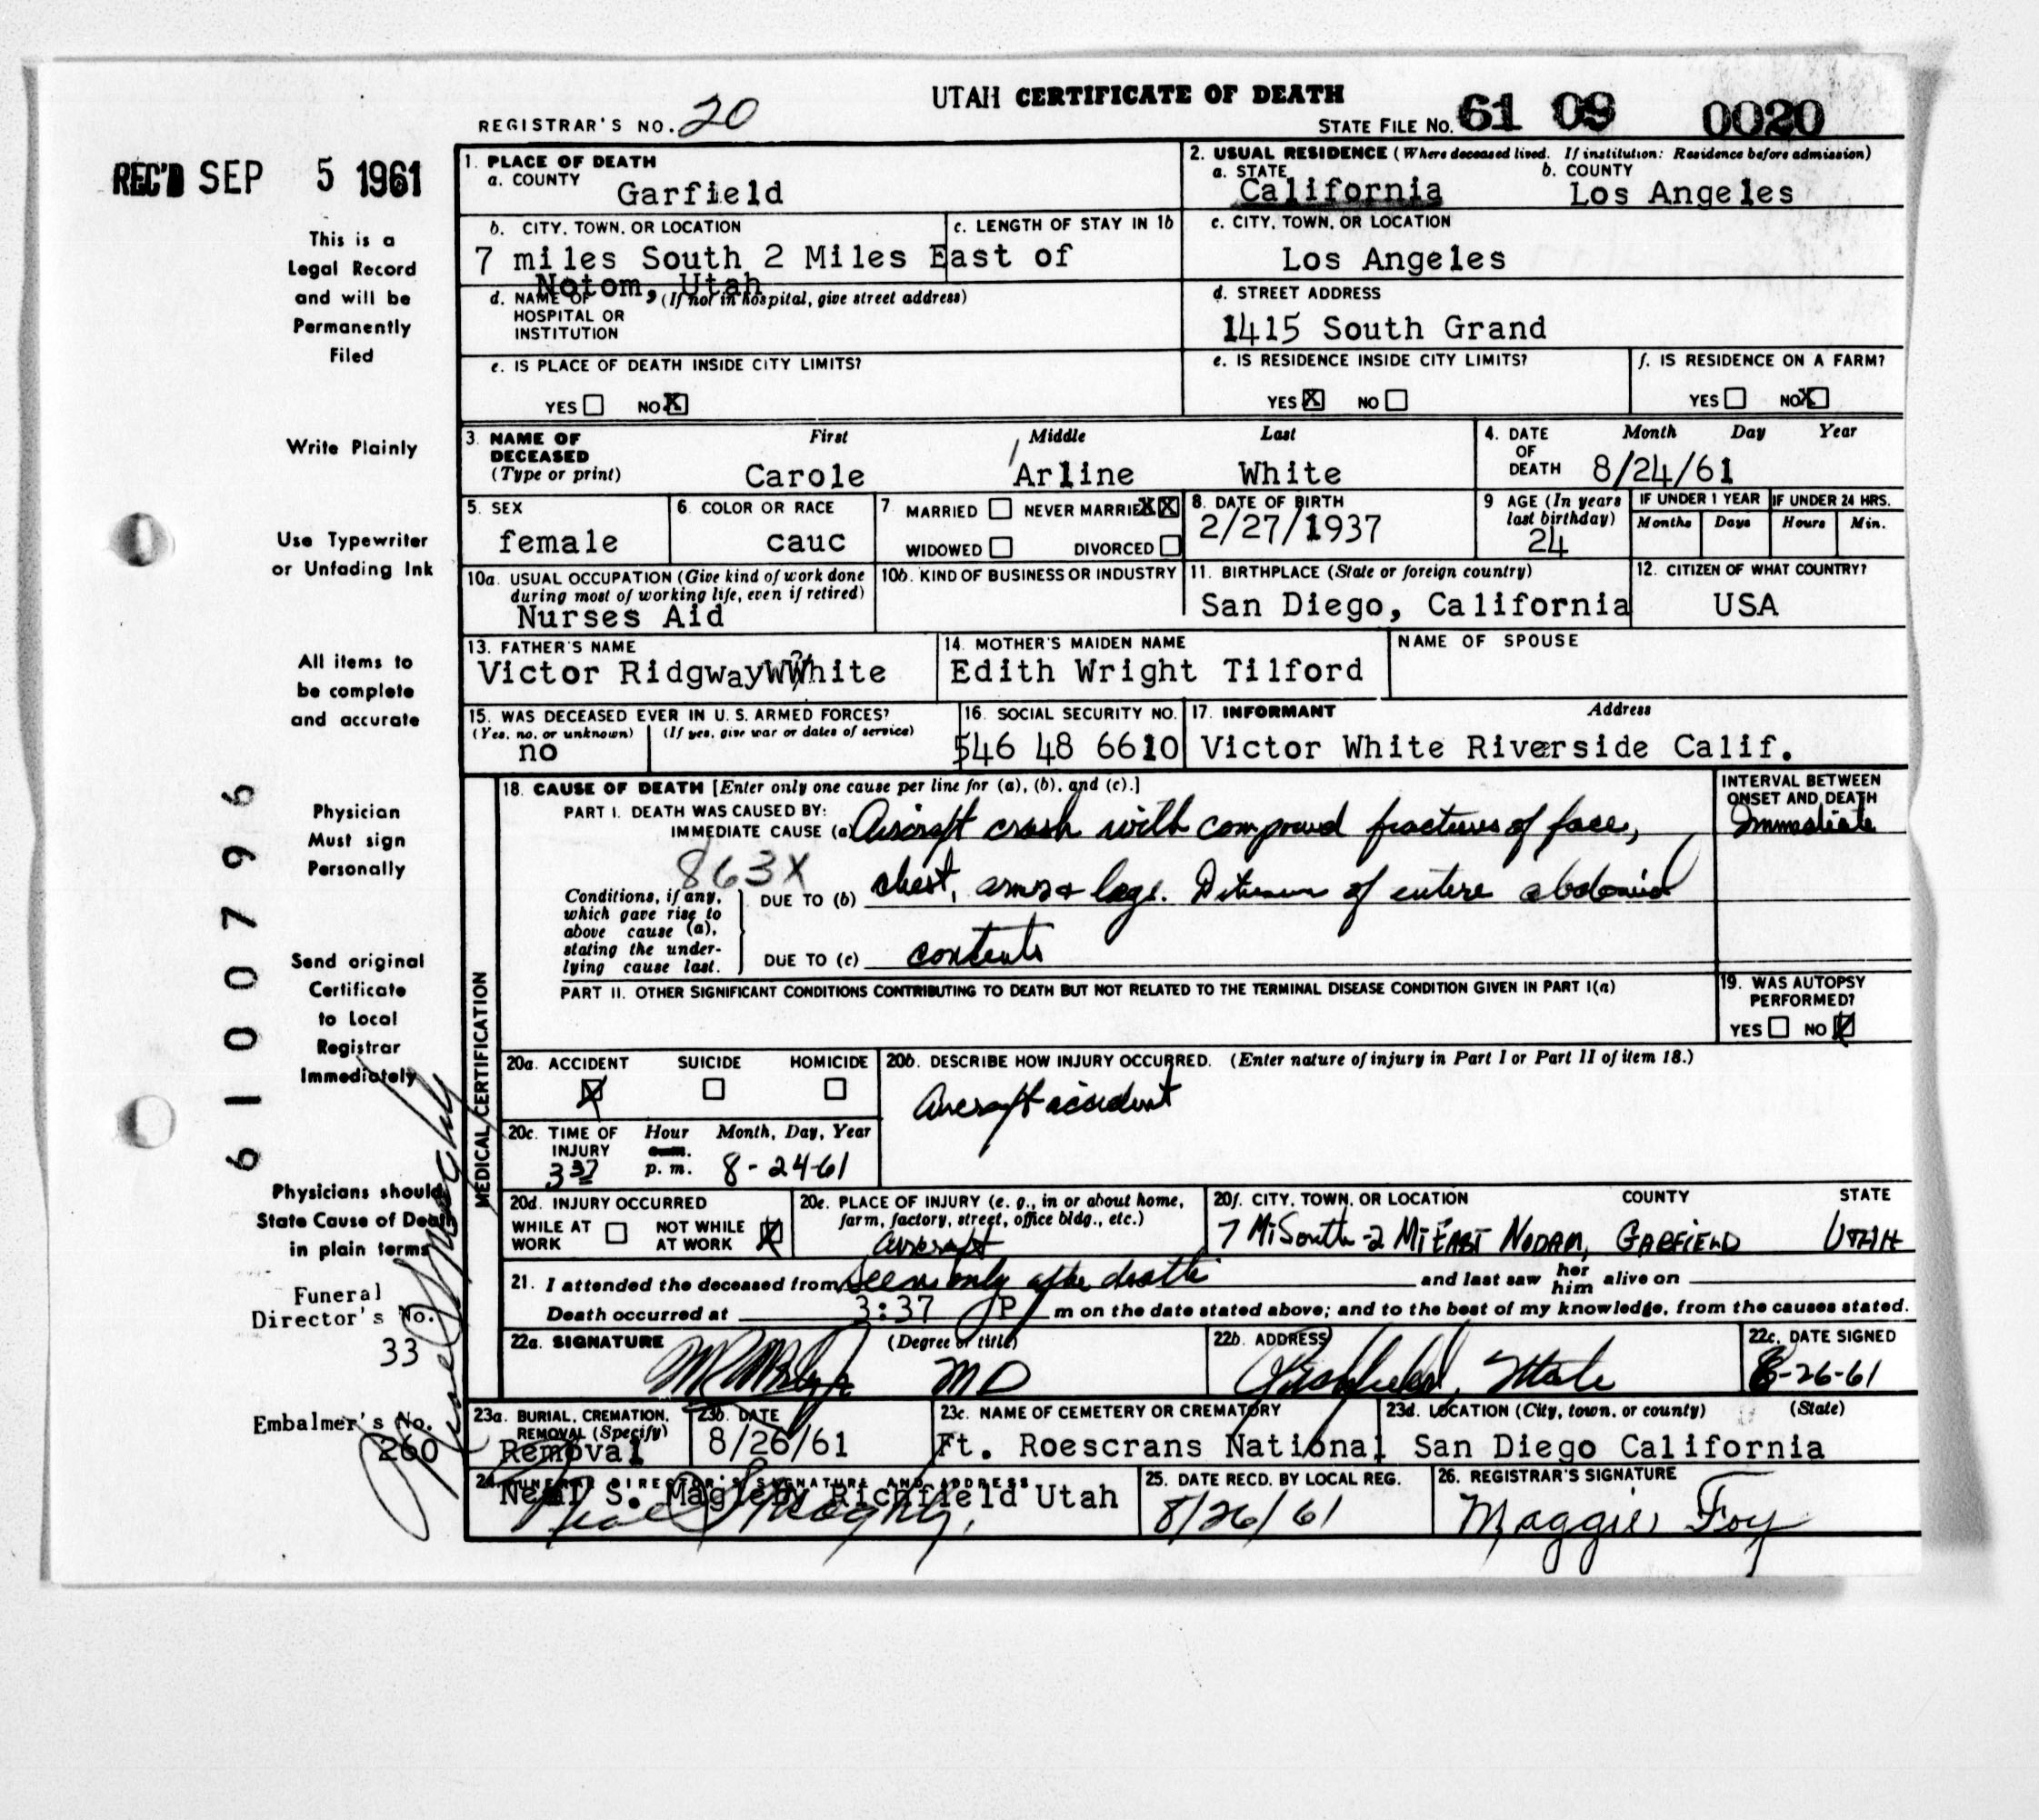 UTAH CERTIFICATE OF DEATH
REGISTRAR'S NO. 20
STATE FILE NO. 61 09 0020
REC'D SEP 5 1961
This is a
Legal Record
and will be
Permanently
Filed
Write Plainly
Use Typewriter
or Unfading Ink
All items to
be complete
and accurate
Physician
Must sign
Personally
Send original
Certificate
to Local
Registrar
Immediately
Physicians should
State Cause of Death
in plain terms
Funeral
Director's No.
33
Embalmer's No.
260
6100796
1. PLACE OF DEATH
a. COUNTY
Garfield
2. USUAL RESIDENCE (Where deceased lived. If institution: Residence before admission)
a. STATE b. COUNTY
California Los Angeles
b. CITY, TOWN, OR LOCATION c. LENGTH OF STAY IN 1b
7 miles South 2 Miles East of
Notom, Utah
c. CITY, TOWN, OR LOCATION
Los Angeles
d. NAME OF (If not in hospital, give street address)
HOSPITAL OR
INSTITUTION
d. STREET ADDRESS
1415 South Grand
e. IS PLACE OF DEATH INSIDE CITY LIMITS?
YES NO X
e. IS RESIDENCE INSIDE CITY LIMITS?
YES X NO
f. IS RESIDENCE ON A FARM?
YES NO X
3. NAME OF DECEASED (Type or print)
First Middle Last
Carole Arline White
4. DATE OF DEATH Month Day Year
8/24/61
5. SEX
female
6. COLOR OR RACE
cauc
7 MARRIED NEVER MARRIED X X
WIDOWED DIVORCED
8. DATE OF BIRTH
2/27/1937
9 AGE (In years last birthday)
24
IF UNDER 1 YEAR IF UNDER 24 HRS.
Months Days Hours Min.
10a. USUAL OCCUPATION (Give kind of work done
during most of working life, even if retired)
Nurses Aid
10b. KIND OF BUSINESS OR INDUSTRY
11. BIRTHPLACE (State or foreign country)
San Diego, California
12. CITIZEN OF WHAT COUNTRY?
USA
13. FATHER'S NAME
Victor Ridgway White
14. MOTHER'S MAIDEN NAME
Edith Wright Tilford
NAME OF SPOUSE
15. WAS DECEASED EVER IN U. S. ARMED FORCES?
(Yes, no, or unknown) (If yes, give war or dates of service)
no
16. SOCIAL SECURITY NO.
546 48 6610
17. INFORMANT Address
Victor White Riverside Calif.
MEDICAL CERTIFICATION
18. CAUSE OF DEATH [Enter only one cause per line for (a), (b), and (c).]
PART I. DEATH WAS CAUSED BY:
IMMEDIATE CAUSE (a) Aircraft crash with compound fractures of face,
863X
Conditions, if any,
which gave rise to
above cause (a),
stating the under-
lying cause last.
DUE TO (b) chest, arms & legs. of entire abdominal
DUE TO (c) contents
INTERVAL BETWEEN
ONSET AND DEATH
Immediate
PART II. OTHER SIGNIFICANT CONDITIONS CONTRIBUTING TO DEATH BUT NOT RELATED TO THE TERMINAL DISEASE CONDITION GIVEN IN PART I(a)
19. WAS AUTOPSY
PERFORMED?
YES NO X
20a. ACCIDENT SUICIDE HOMICIDE
X
20b. DESCRIBE HOW INJURY OCCURRED. (Enter nature of injury in Part I or Part II of item 18.)
Aircraft accident
20c. TIME OF INJURY Hour Month, Day, Year
3 37 a.m. p. m. 8-24-61
20d. INJURY OCCURRED
WHILE AT WORK NOT WHILE AT WORK X
20e. PLACE OF INJURY (e. g., in or about home,
farm, factory, street, office bldg., etc.)
aircraft
20f. CITY, TOWN, OR LOCATION COUNTY STATE
7 Mi South -2 Mi EAST NODAM, GARFIELD UTAH
21. I attended the deceased from Seen only after death and last saw her him alive on
Death occurred at 3:37 P m on the date stated above; and to the best of my knowledge, from the causes stated.
22a. SIGNATURE (Degree or title)
MD
22b. ADDRESS
Richfield, Utah
22c. DATE SIGNED
8-26-61
23a. BURIAL, CREMATION,
REMOVAL (Specify)
Removal
23b. DATE
8/26/61
23c. NAME OF CEMETERY OR CREMATORY
Ft. Roescrans National
23d. LOCATION (City, town, or county) (State)
San Diego California
24. FUNERAL DIRECTOR'S SIGNATURE AND ADDRESS
Neal S. Magleby Richfield Utah
Neal S Magleby
25. DATE RECD. BY LOCAL REG.
8/26/61
26. REGISTRAR'S SIGNATURE
Maggie Foy
Neal S Magleby